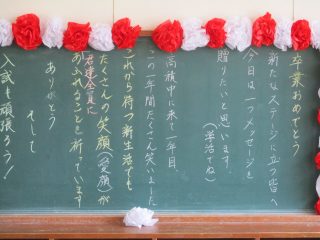 卒業おめでとう
新たなステージに立つ皆へ
今日は一つメッセージを
贈りたいと思います。
(学活でね)
高積中に来て一年目、
この一年間たくさん笑いました
これから待つ新生活でも
たくさんの笑顔(愛顔)が
君達全員に
あふれることを祈っています
ありがとう
そして
入試も頑張ろう!